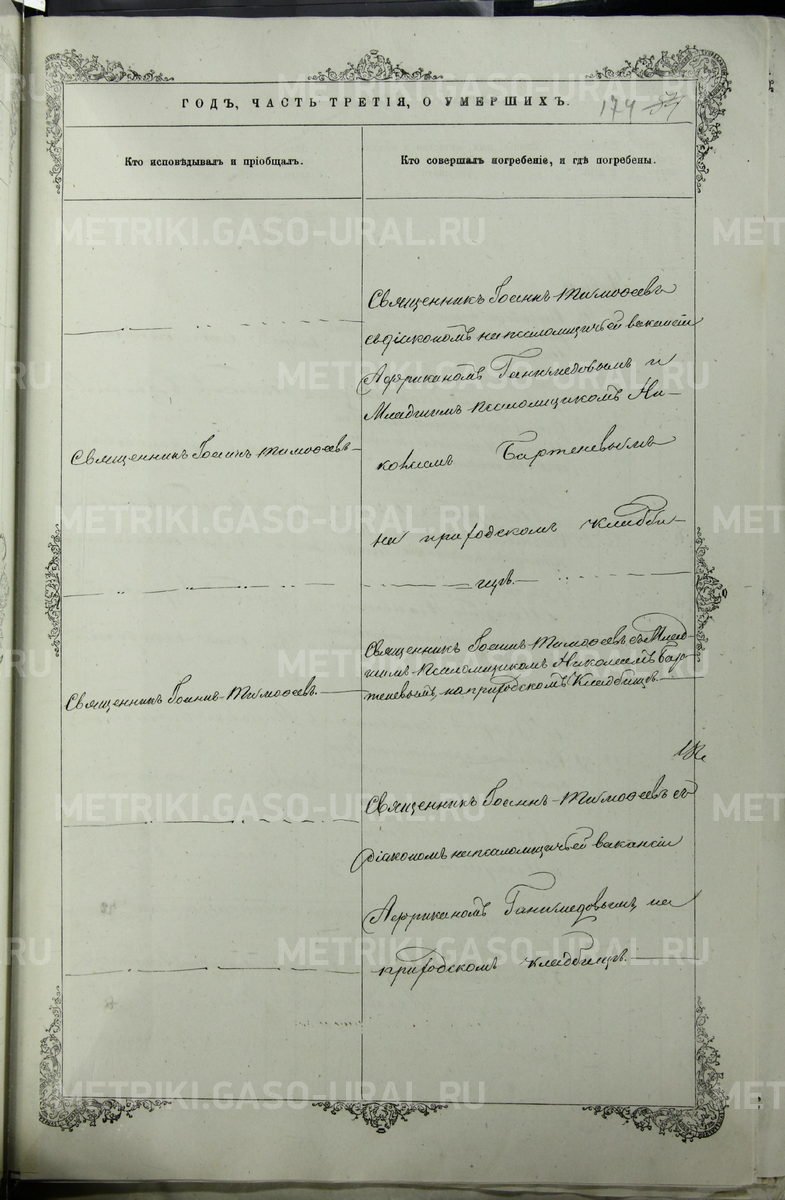 ГОДЪ, ЧАСТЬ ТРЕТІЯ, О УМЕРШИХЪ.
174
Кто исповѣдывалъ и пріобщалъ.
Кто совершалъ погребеніе, и гдѣ погребены.
Священникъ Іоаннъ Тимоѳеевъ
съ діакономъ на псаломщичьей вакансіи
Африканомъ Ганимедовымъ и
Младшимъ псаломщикомъ Ни-
колаемъ Бартеневымъ
на приходскомъ кладби-
щѣ.
Священникъ Іоаннъ Тимоѳеевъ
Священникъ Іоаннъ Тимоѳеевъ съ Млад-
шимъ псаломщикомъ Николаемъ Бар-
теневымъ, на приходскомъ кладбищѣ.
Священникъ Іоаннъ Тимоѳеевъ.
Священникъ Іоаннъ Тимоѳеевъ съ
діакономъ на псаломщичьей вакансіи
Африканомъ Ганимедовымъ, на
приходскомъ кладбищѣ.
METRIKI.GASO-URAL.RU